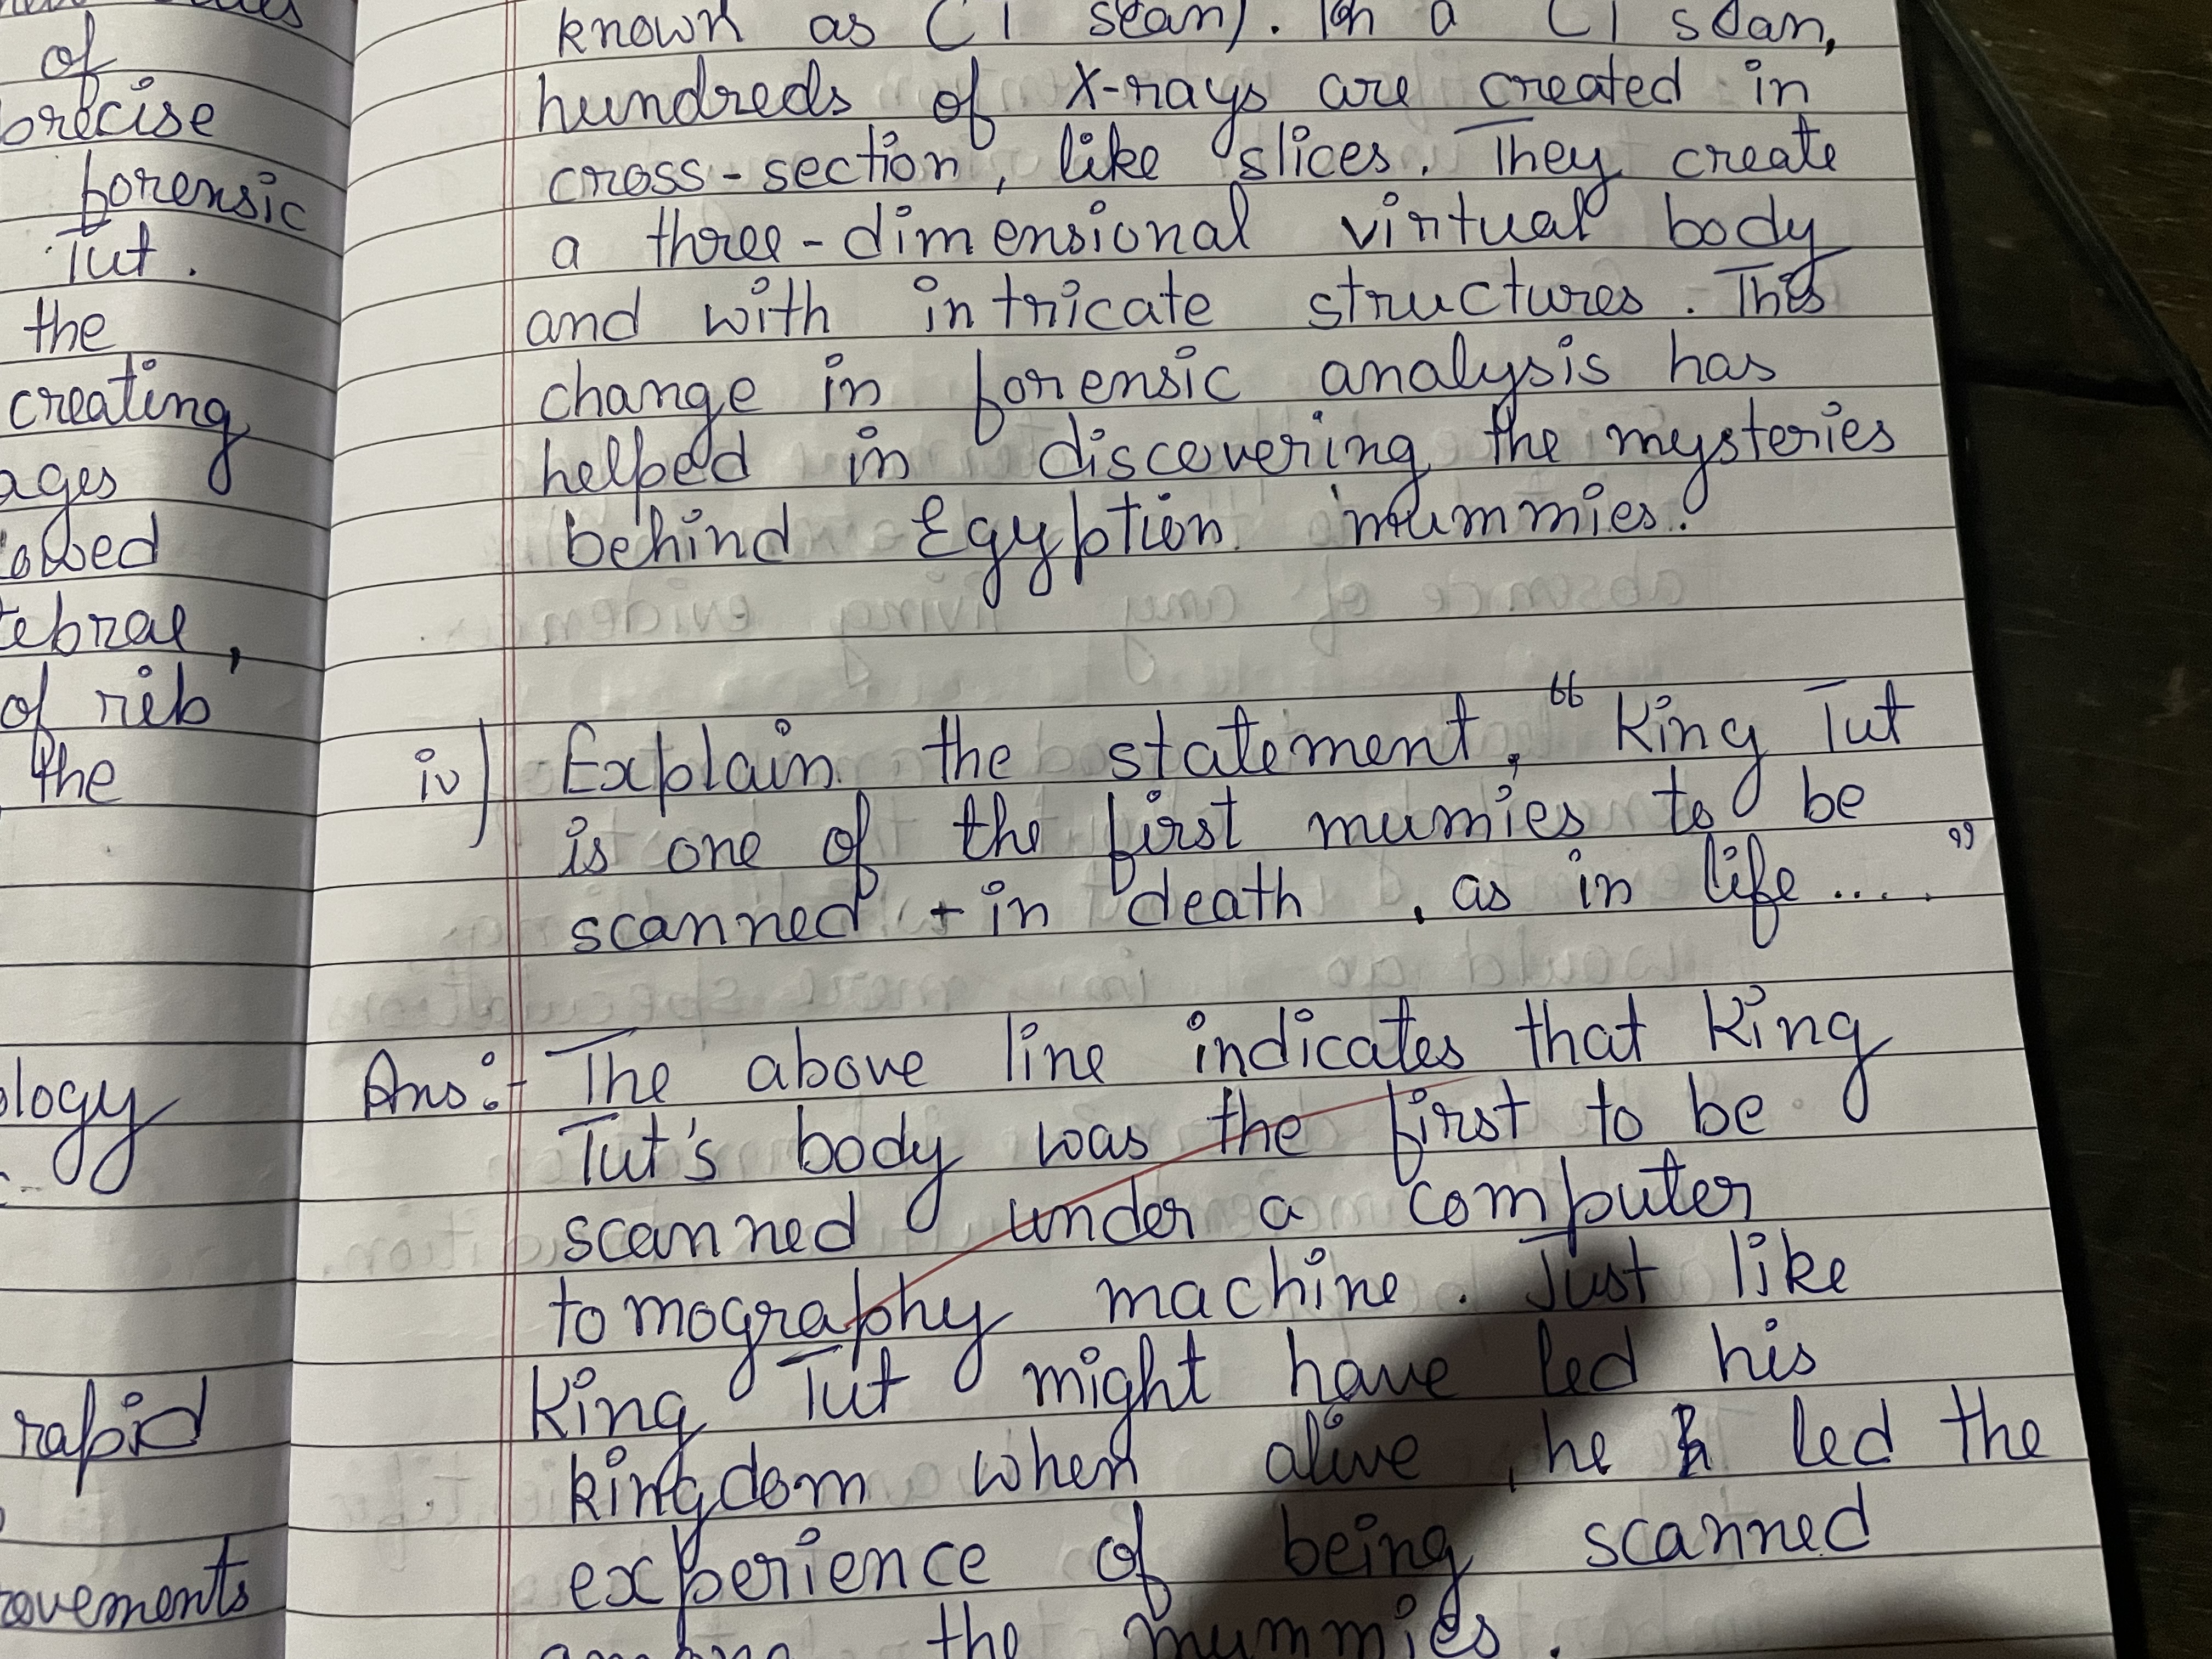 of
precise
forensic
Tut.
the
creating
the
of rib
rapid
known as CT scan). In a CT scan,
hundreds of X-rays are created in
cross-section, like slices. They create
a three-dimensional virtual body
and with intricate structures. This
change in forensic analysis has
helped in discovering the mysteries
behind Egyption mummies.
iv) Explain the statement, "King Tut
is one of the first mumies to be
scanned - in death, as in life ....."
Ans:- The above line indicates that King
Tut's body was the first to be
scanned under a computer
tomography machine. Just like
King Tut might have led his
kingdom when alive, he led the
experience of being scanned
among the mummies.